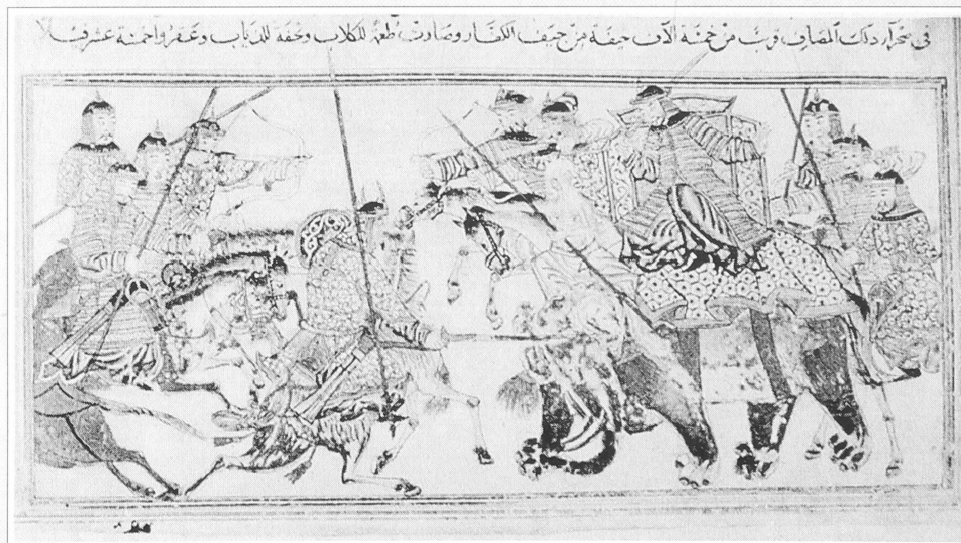 فى صحرآء ذلك المصاف قرب من خمسة الاف جيفة من جيف الكفار وصارت طعمة للكلاب وتحفة للذياب خمسة عشر فيلا